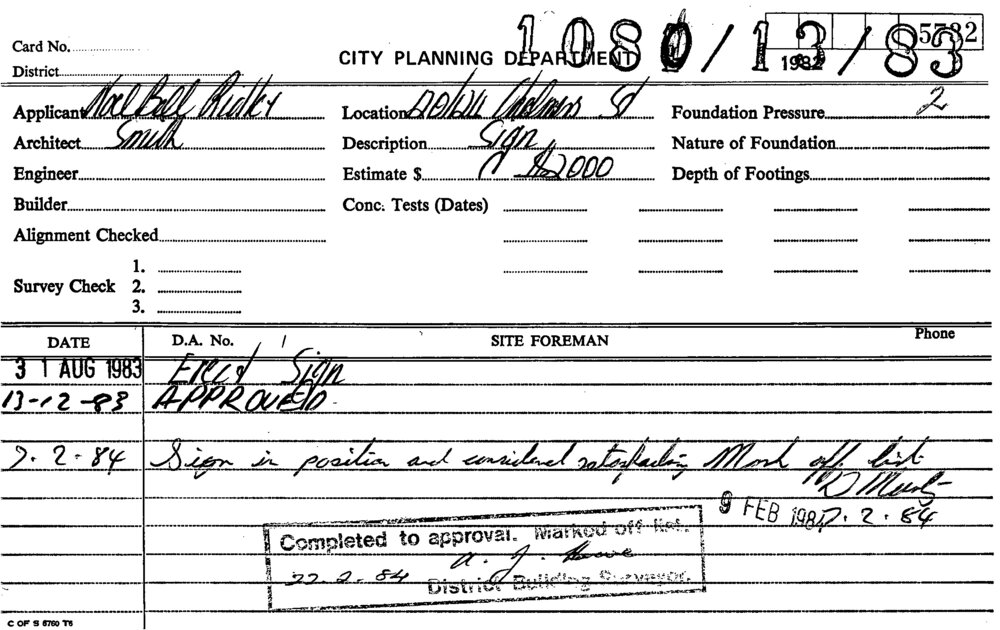 1080/13/83
5732
1982
Card No.
CITY PLANNING DEPARTMENT
District
Applicant Noel Bell Ridley Location Chalmers St Foundation Pressure 2
Architect Smith Description Sign Nature of Foundation
Engineer Estimate $ $2000 Depth of Footings
Builder Conc. Tests (Dates)
Alignment Checked
1.
Survey Check 2.
3.
DATE D.A. No. SITE FOREMAN Phone
31 AUG 1983 Erect Sign
13-12-83 APPROVED.
7.2.84 Sign in position and considered satisfactory Mark off list
9 FEB 1984 7.2.84
Completed to approval. Marked off list.
A. J. Howe
22.2.84 District Building Surveyor.
C OF S 5760 T6